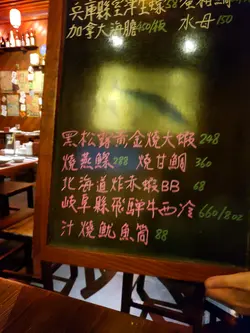 兵庫縣室津生蠔58
加拿大海膽 版 水母150
黑松露黃金燒大蝦248
燒燕鰈288 燒甘鯛360
北海道炸赤蝦BB 68
岐阜縣飛驒牛西冷660/8oz
汁燒魷魚筒88